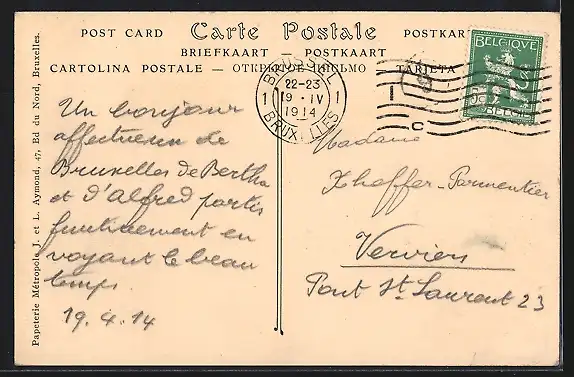 POST CARD Carte Postale POSTKARTE
BRIEFKAART — POSTKAART
CARTOLINA POSTALE — ОТКРЫТОЕ ПИСЬМО — TARJETA
BRUSSEL
22-23
1 19 · IV 1
1914
BRUXELLES
BELGIQUE
5
BELGIË
Papeterie Métropole J. et L. Aymond, 47, Bd du Nord, Bruxelles.
Un bonjour
affectueux de
Bruxelles de Bertha
et d'Alfred partis
furtivement en
voyant le beau
temps.
19.4.14
Madame
Xhaffer-Parmentier
Verviers
Pont St Laurent 23